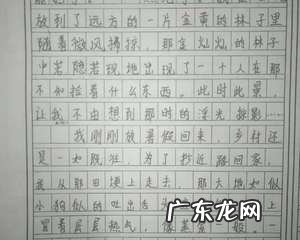 放到了远方的一片金黄的林子里
随着微风摇摆，那金灿灿的林子
中若隐若现地出现了一个人在那
不知拉着什么东西。此时此景，
让我不由想到那时的浮光掠影……
我刚刚放暑假回来，乡村还
是一如既往，为了抄近路回家，
我从那田埂上走去，那大地如似
小狗似的吐出舌头
冒着层层热气，像蒸笼一般。
广东龙网